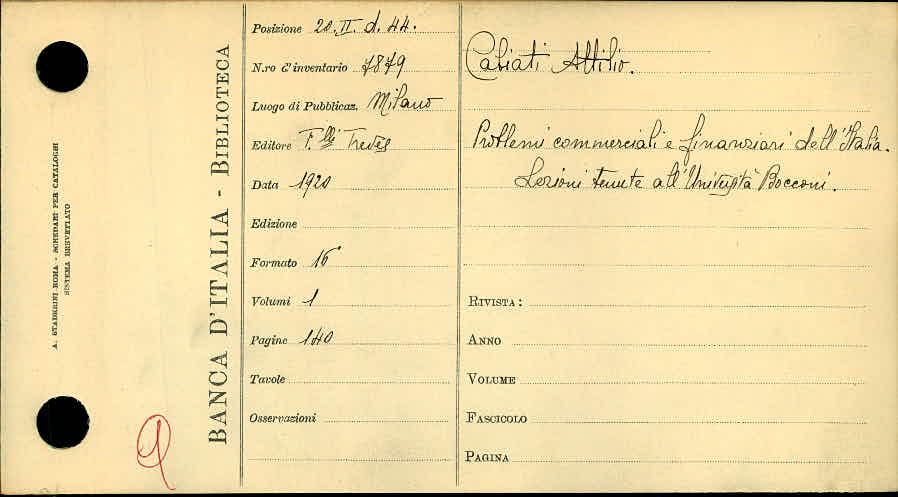 A. STADERINI ROMA - SCHEDARI PER CATALOGHI
SISTEMA BREVETTATO
BANCA D'ITALIA - BIBLIOTECA
Posizione 20. II. d. 44.
N.ro d'inventario 7879
Luogo di Pubblicaz. Milano
Editore F.lli Treves
Data 1920
Edizione
Formato 16°
Volumi 1
Pagine 140
Tavole
Osservazioni
Cabiati Attilio.
Problemi commerciali e finanziari dell'Italia.
Lezioni tenute all'Università Bocconi.
RIVISTA:
ANNO
VOLUME
FASCICOLO
PAGINA